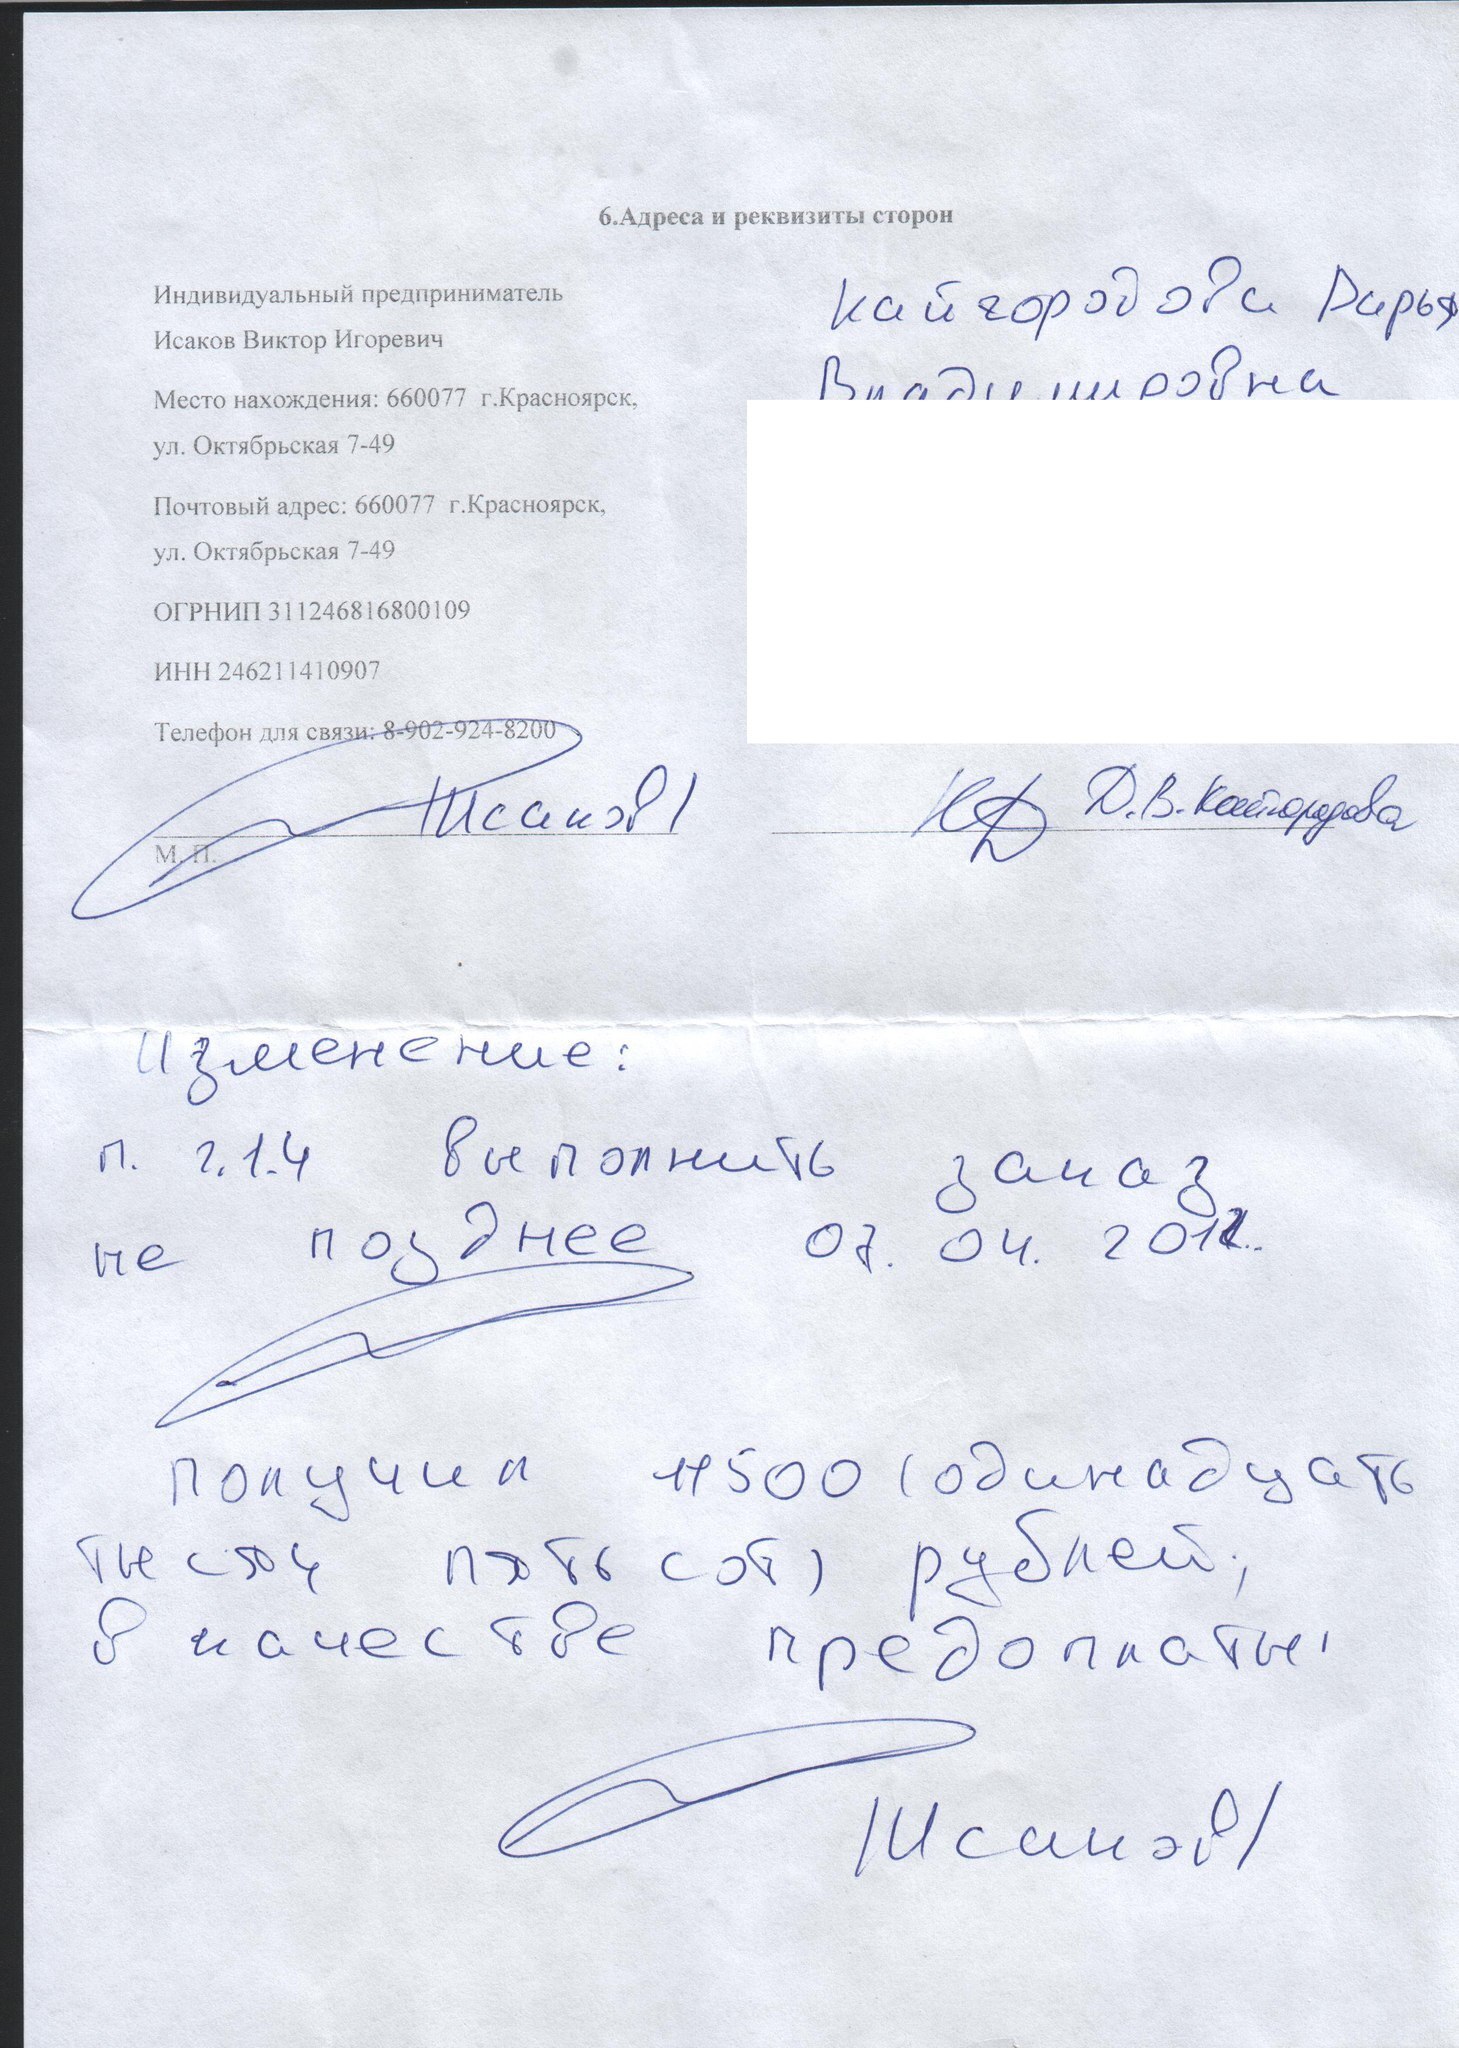 6.Адреса и реквизиты сторон
Индивидуальный предприниматель
Исаков Виктор Игоревич
Место нахождения: 660077 г.Красноярск,
ул. Октябрьская 7-49
Почтовый адрес: 660077 г.Красноярск,
ул. Октябрьская 7-49
ОГРНИП 311246816800109
ИНН 246211410907
Телефон для связи: 8-902-924-8200
/Исаков/
М. П.
Кайгородова Дарья
Владимировна
Д.В.Кайгородова
Изменение:
п. 2.1.4 выполнить заказ
не позднее 07.04.2012.
Получил 11500 (одинадцать
тысяч пятьсот) рублей,
в качестве предоплаты.
/Исаков/